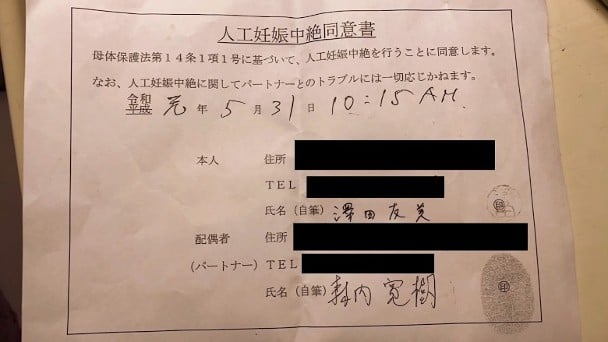 人工妊娠中絶同意書
母体保護法第14条1項1号に基づいて、人工妊娠中絶を行うことに同意します。
なお、人工妊娠中絶に関してパートナーとのトラブルには一切応じかねます。
令和
平成 元 年 5 月 31 日 10:15 AM.
本人 住所
TEL
氏名(自筆) 澤田友美 印
配偶者 住所
(パートナー) TEL
氏名(自筆) 内寛樹 印